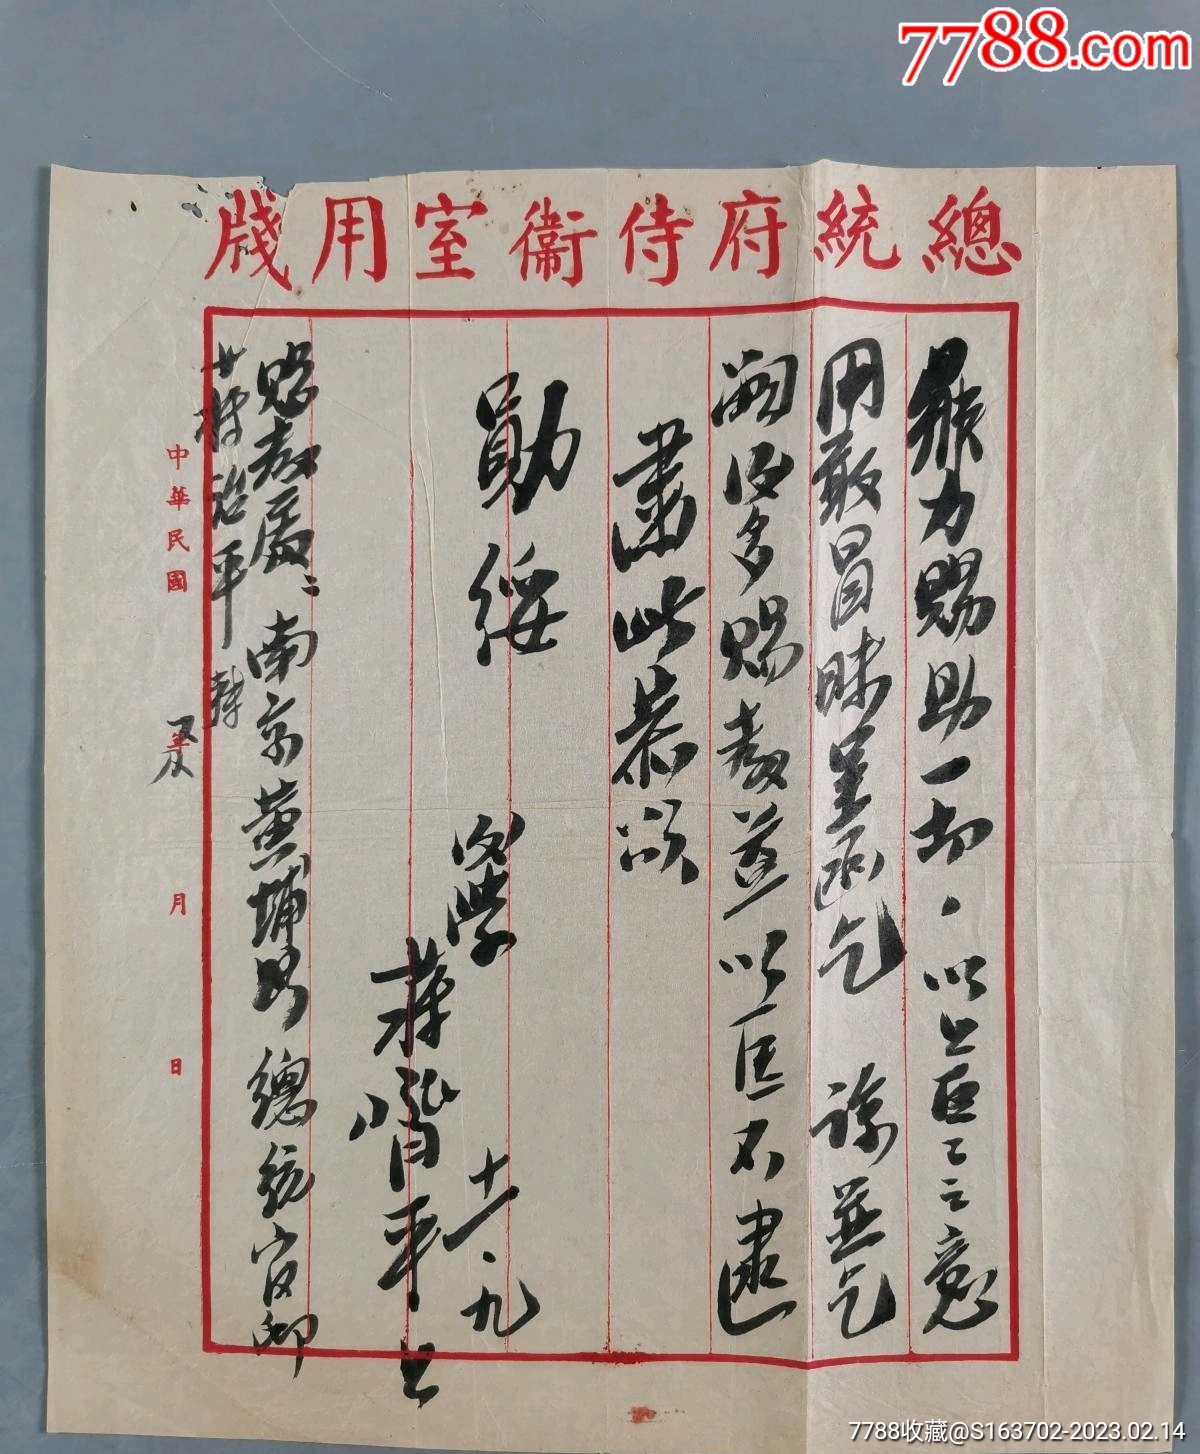 7788.com
總統府侍衛室用牋
力賜助一切、以上區區之意
用敢冒昧呈函乞 諒並乞
嗣後多賜教益以匡不逮
肅此恭頌
勛綏
後學 蔣階平上 十一.九
賜教處:南京黃埔路總統官邸
蔣階平
中華民國 年 月 日
7788收藏@S163702-2023.02.14